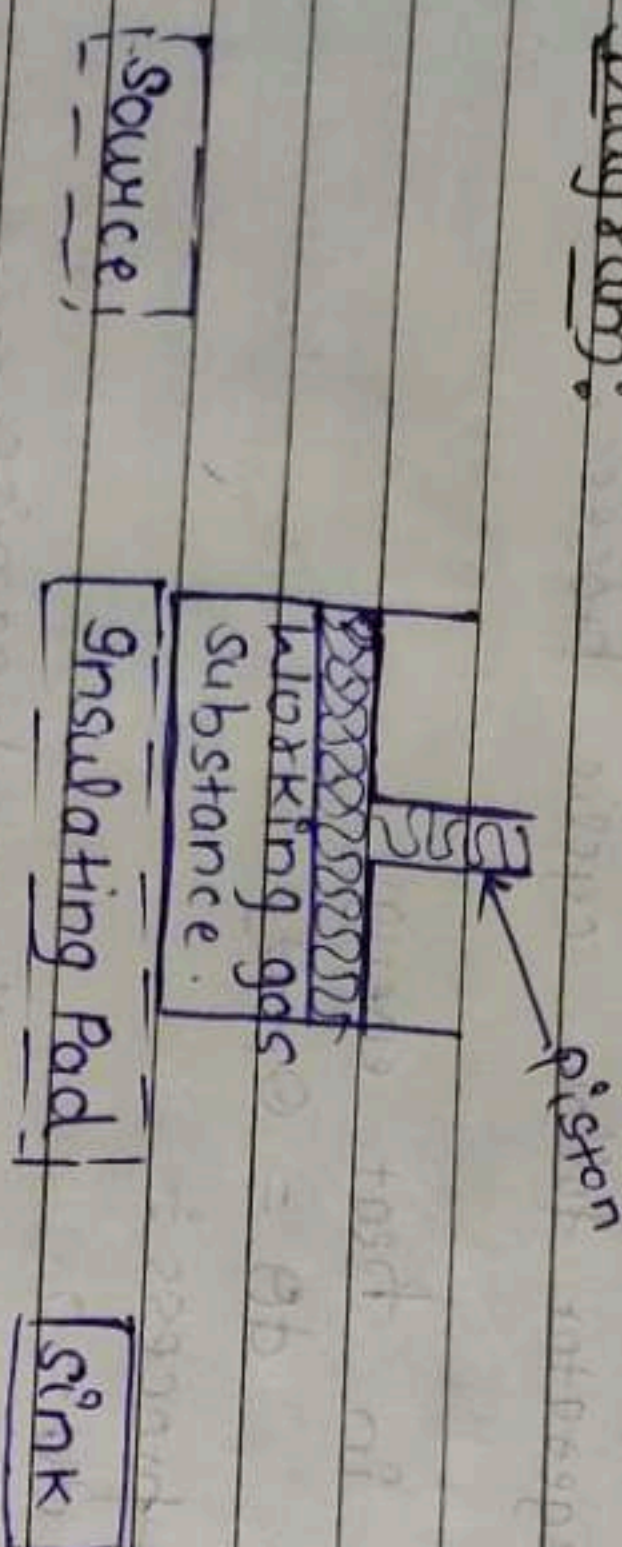 Diagram:
piston
Working gas
substance.
Source
Insulating Pad
Sink